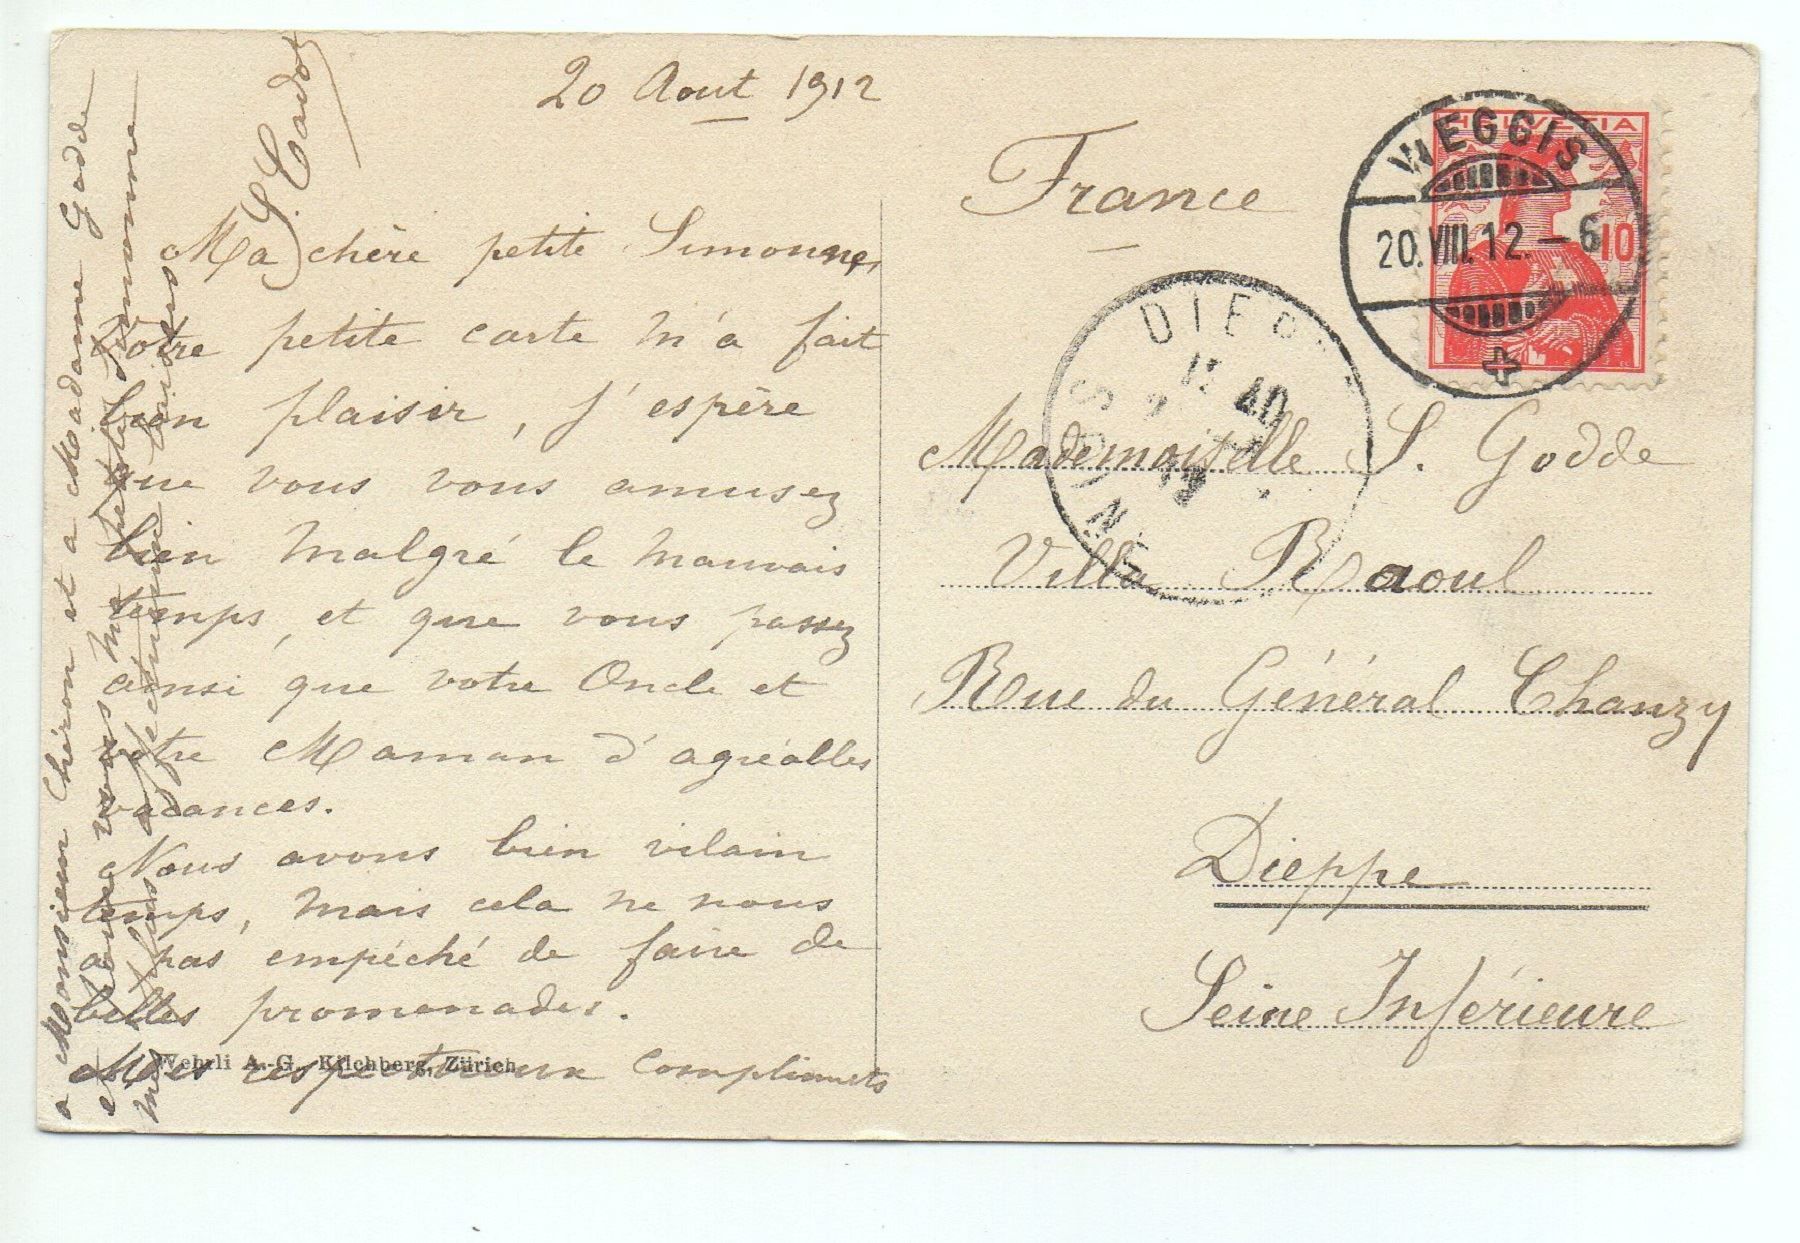 20 Aout 1912
Ma chère petite Simonne,
Votre petite carte m'a fait
bien plaisir, j'espère
que vous vous amusez
bien malgré le mauvais
temps, et que vous passez
ainsi que votre Oncle et
votre Maman d'agréables
vacances.
Nous avons bien vilain
temps, mais cela ne nous
a pas empéché de faire de
belles promenades.
Mes respectueux compliments
a Monsieur Chéron et a Madame Godde
et pour vous ma petite Simonne
mes plus affectueux baisers
Wehrli A.-G., Kilchberg, Zürich
France
HELVETIA
10
WEGGIS
20.VIII.12.–6
DIEPP
12
Mademoiselle S. Godde
Villa Raoul
Rue du Général Chanzy
Dieppe
Seine Inférieure